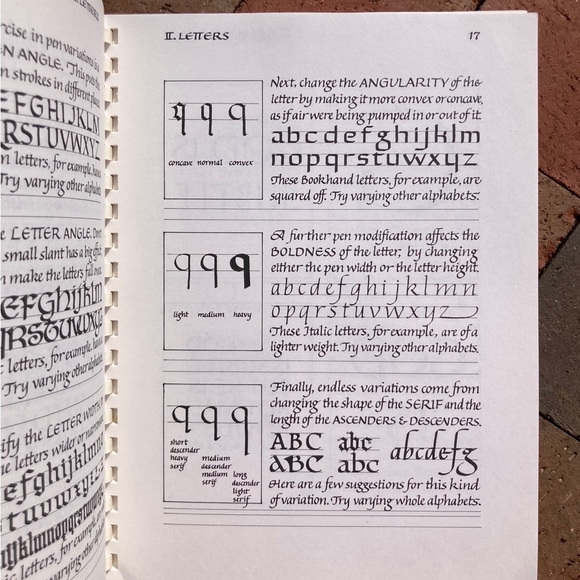 LETTERS
rcise in pen variations is
EN ANGLE. This puts the
n strokes in different places
EFGHIJKLM
RSTUVWXYZ
n letters, for example, have
Try varying other alphabets.
he LETTER ANGLE. Don't
small slant has a big effect
n make the letters fall over.
efghijklm
rstuvwxyz
letters, for example,
Try varying other alphabets.
ify the LETTER WIDTH
letters wider or narrower
efghijklm
tuvwxyz
ijklmnopqrs
letters, for example,
Try varying other
II. LETTERS
17
q q q
concave normal convex
Next, change the ANGULARITY of the
letter by making it more convex or concave,
as if air were being pumped in or out of it.
abcdefghijklm
nopqrstuvwxyz
These Bookhand letters, for example, are
squared off. Try varying other alphabets.
q q q
light medium heavy
A further pen modification affects the
BOLDNESS of the letter, by changing
either the pen width or the letter height.
abcdefghijklmn
opqrstuvwxyz
These Italic letters, for example, are of a
lighter weight. Try varying other alphabets.
q q q
short
descender
heavy
serif
medium
descender
medium
serif
long
descender
light
serif
Finally, endless variations come from
changing the shape of the SERIF and the
length of the ASCENDERS & DESCENDERS.
ABC abc abcdefg
ABC abc
Here are a few suggestions for this kind
of variation. Try varying whole alphabets.